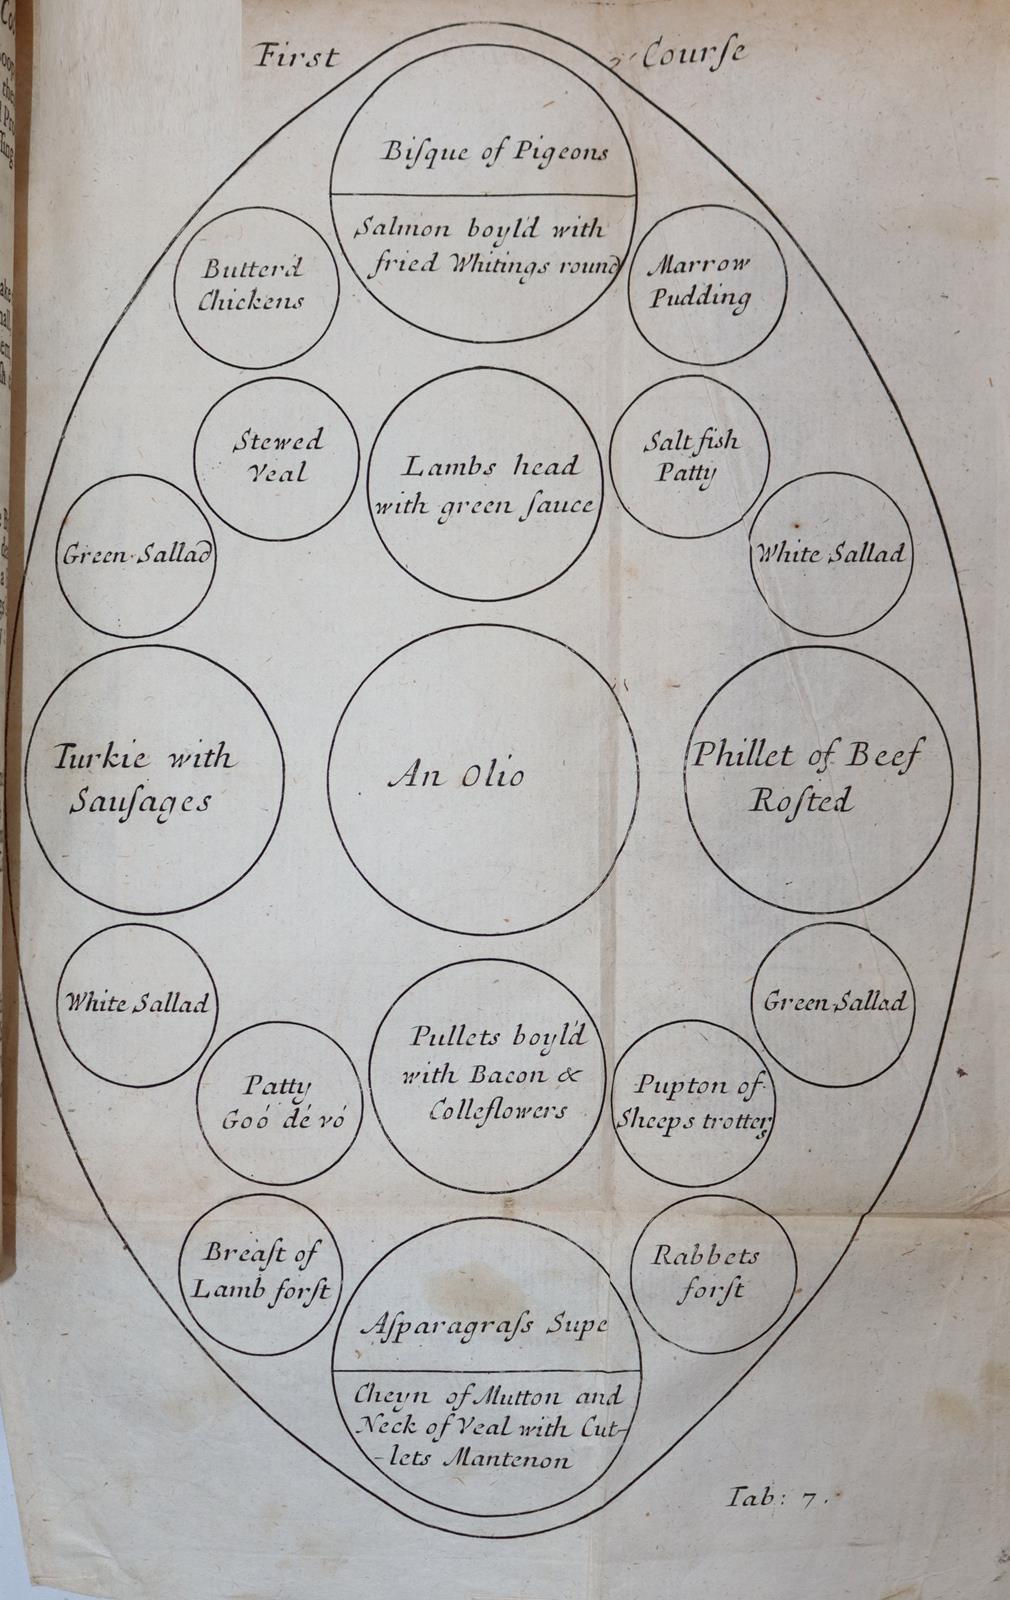 First Courſe
Biſque of Pigeons
Salmon boyl'd with
fried Whitings round
Butterd
Chickens
Marrow
Pudding
Stewed
Veal
Lambs head
with green ſauce
Salt fish
Patty
Green Sallad
White Sallad
Turkie with
Sauſages
An Olio
Phillet of Beef
Roſted
White Sallad
Green Sallad
Patty
Goó dé vó
Pullets boyl'd
with Bacon &
Colleflowers
Pupton of
Sheeps trotters
Breaſt of
Lamb forſt
Rabbets
forſt
Aſparagraſs Supe
Cheyn of Mutton and
Neck of Veal with Cut-
-lets Mantenon
Tab: 7.